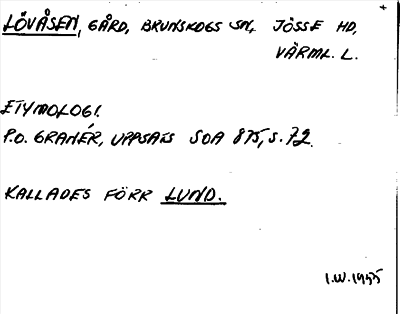 LÖVÅSEN, GÅRD, BRUNSKOGS SN, JÖSSE HD,
VÄRML. L.
ETYMOLOGI.
P.O. GRANÉR, UPPSATS SOA 875, S. 72.
KALLADES FÖRR LUND.
I.W. 1955